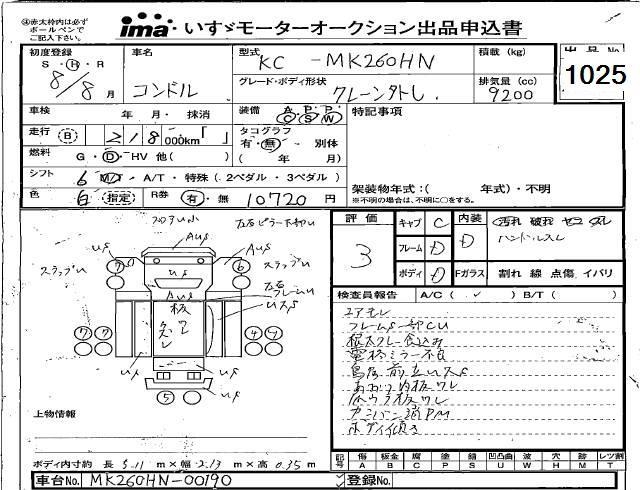 ④赤太枠内は必ず
ボールペンで
ご記入下さい。
ima いすゞモーターオークション出品申込書
初度登録 車名 型式 積載(kg) 出品No
S・H・R KC -MK260HN
8/8月 コンドル グレード・ボディ形状 排気量(cc) 1025
クレーン 9200
車検 年 月・ 抹消 装備 A P P C S W 特記事項
走行 B 218 000km「 」 タコグラフ
有・無 別体
燃料 G・D・HV 他( ) ( 年 月)
シフト 6 M/T・A/T・特殊(.2ペダル・3ペダル)
架装物年式:( 年式)・不明
色 白 指定 R券 有・無 10720円
※不明の場合は、不明に○をする。
評価 キャブ C 内装 汚れ 破れ
3 フレーム D D ハンドルスレ
ボディ D Fガラス 割れ 線 点傷 イバリ
検査員報告 A/C( ✓ ) B/T( )
エアモレ
フレーム一部CU
根太クレー食込み
電格ミラー不良
鳥居前立USA
あおり内板ワレ
床ウラ板ワレ
カンバン済PM
ボディ傾き
AUS
AUS
us
us
スラップU
スラップU
左右
フレームU
AUS
USA
板
ワレ
us
us
us
us
7 6
7 7 4 4
5
上物情報
ボディ内寸 約 長 5.11 m×幅 2.13 m×高 0.35 m
記号 傷 板金 腐 塗 錆 凹凸曲 波 穴 跡 レツ割
A B C P S U W H M T
車台No. MK260HN-00190 登録No.